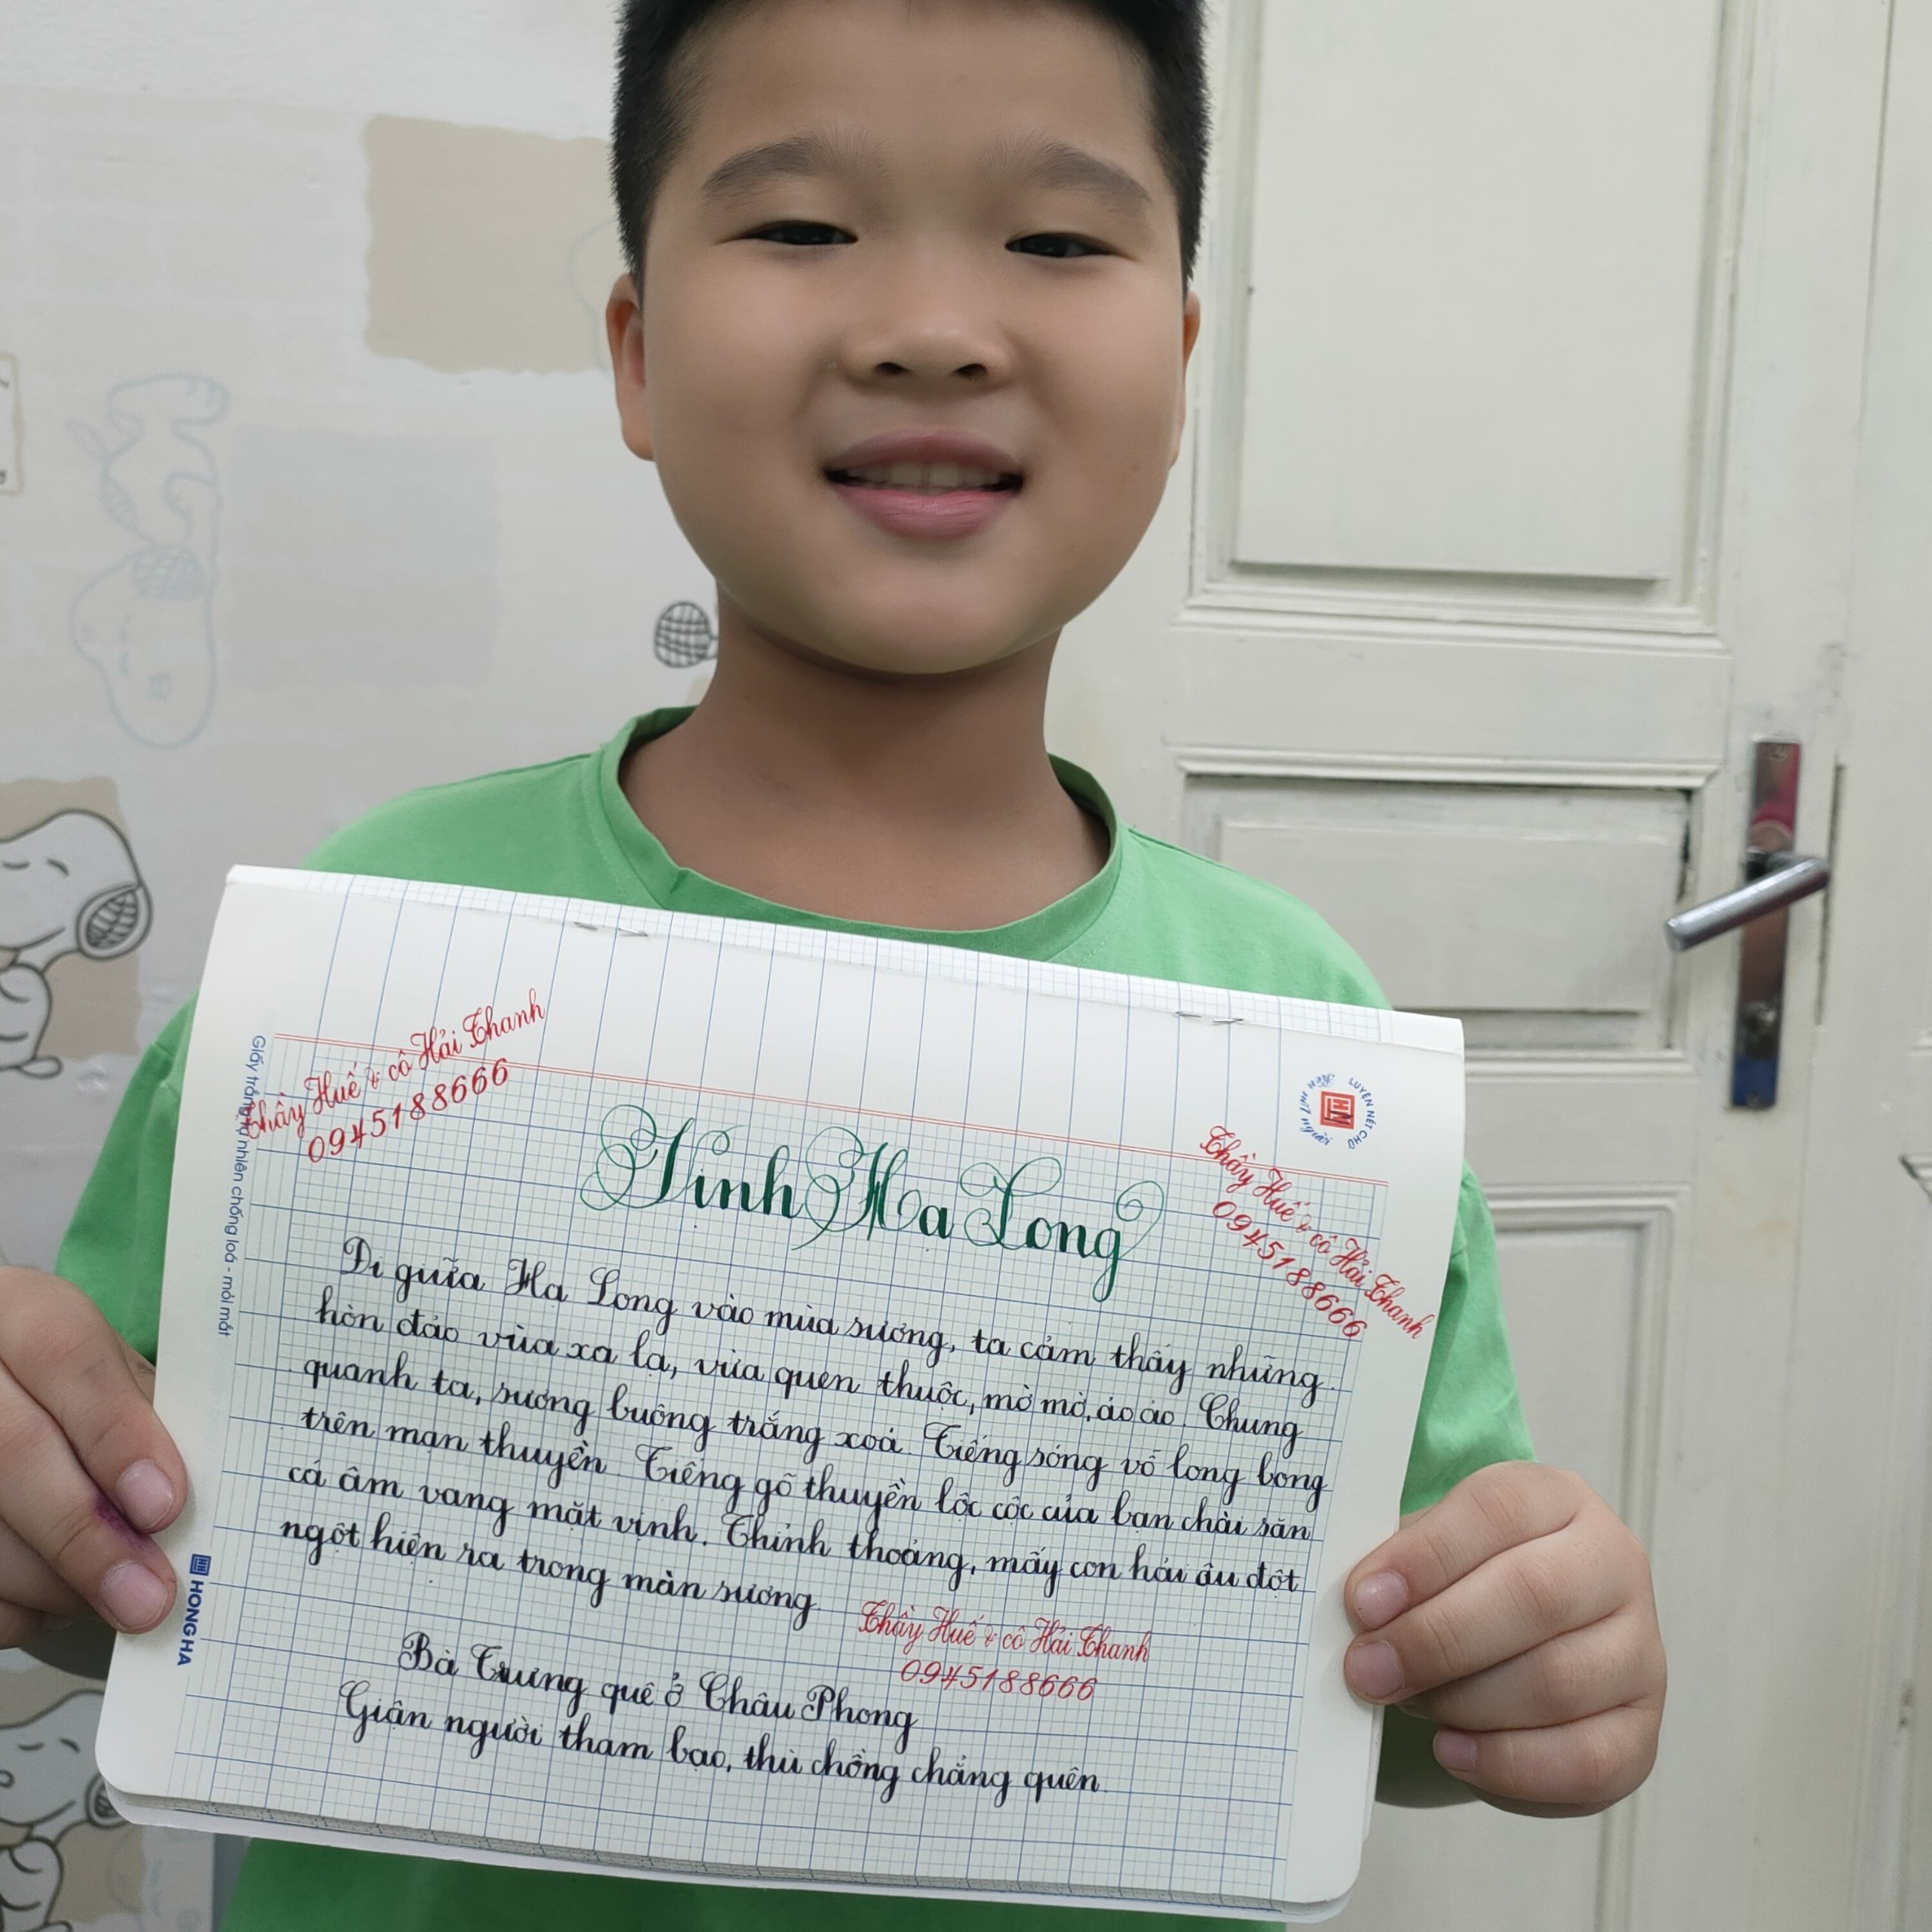 Thầy Huế & cô Hải Thanh
0945188666
LUYỆN NÉT CHỮ
RÈN NẾT NGƯỜI
Thầy Huế & cô Hải Thanh
0945188666
Vịnh Hạ Long
Đi giữa Hạ Long vào mùa sương, ta cảm thấy những
hòn đảo vừa xa lạ, vừa quen thuộc, mờ mờ, ảo ảo. Chung
quanh ta, sương buông trắng xoá. Tiếng sóng vỗ long bong
trên mạn thuyền. Tiếng gõ thuyền lộc cộc của bạn chài săn
cá âm vang mặt vịnh. Thỉnh thoảng, mấy con hải âu đột
ngột hiện ra trong màn sương.
Thầy Huế & cô Hải Thanh
0945188666
Bà Trưng quê ở Châu Phong
Giận người tham bạo, thù chồng chẳng quên.
Giấy trắng tự nhiên chống loá - mỏi mắt
HONG HA